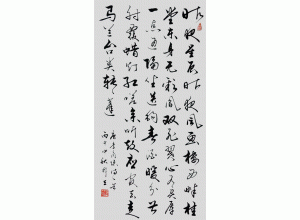 昨夜星辰昨夜風畫樓西畔桂
堂東身無彩鳳雙飛翼心有靈犀
一點通隔座送鈎春酒暖分曹
射覆蠟燈紅嗟余聽鼓應官去走
馬蘭臺類轉蓬
唐李商隱詩一首